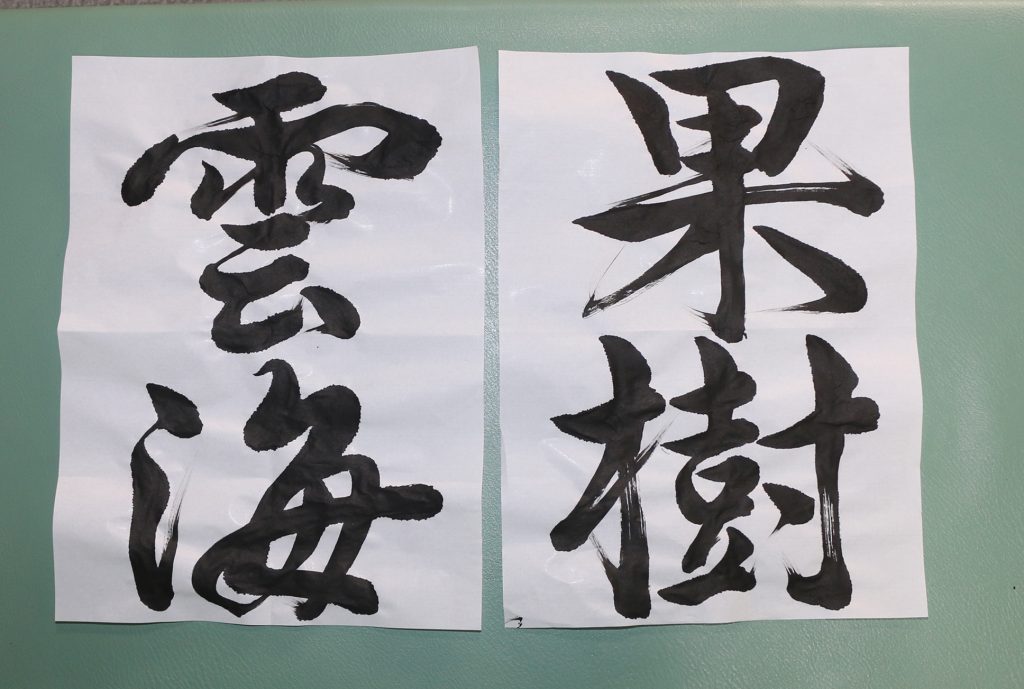 果樹
雲海